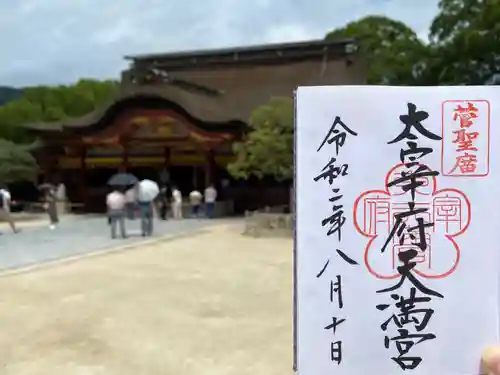 菅聖廟
太宰府天満宮
宰
府
令和二年八月十日